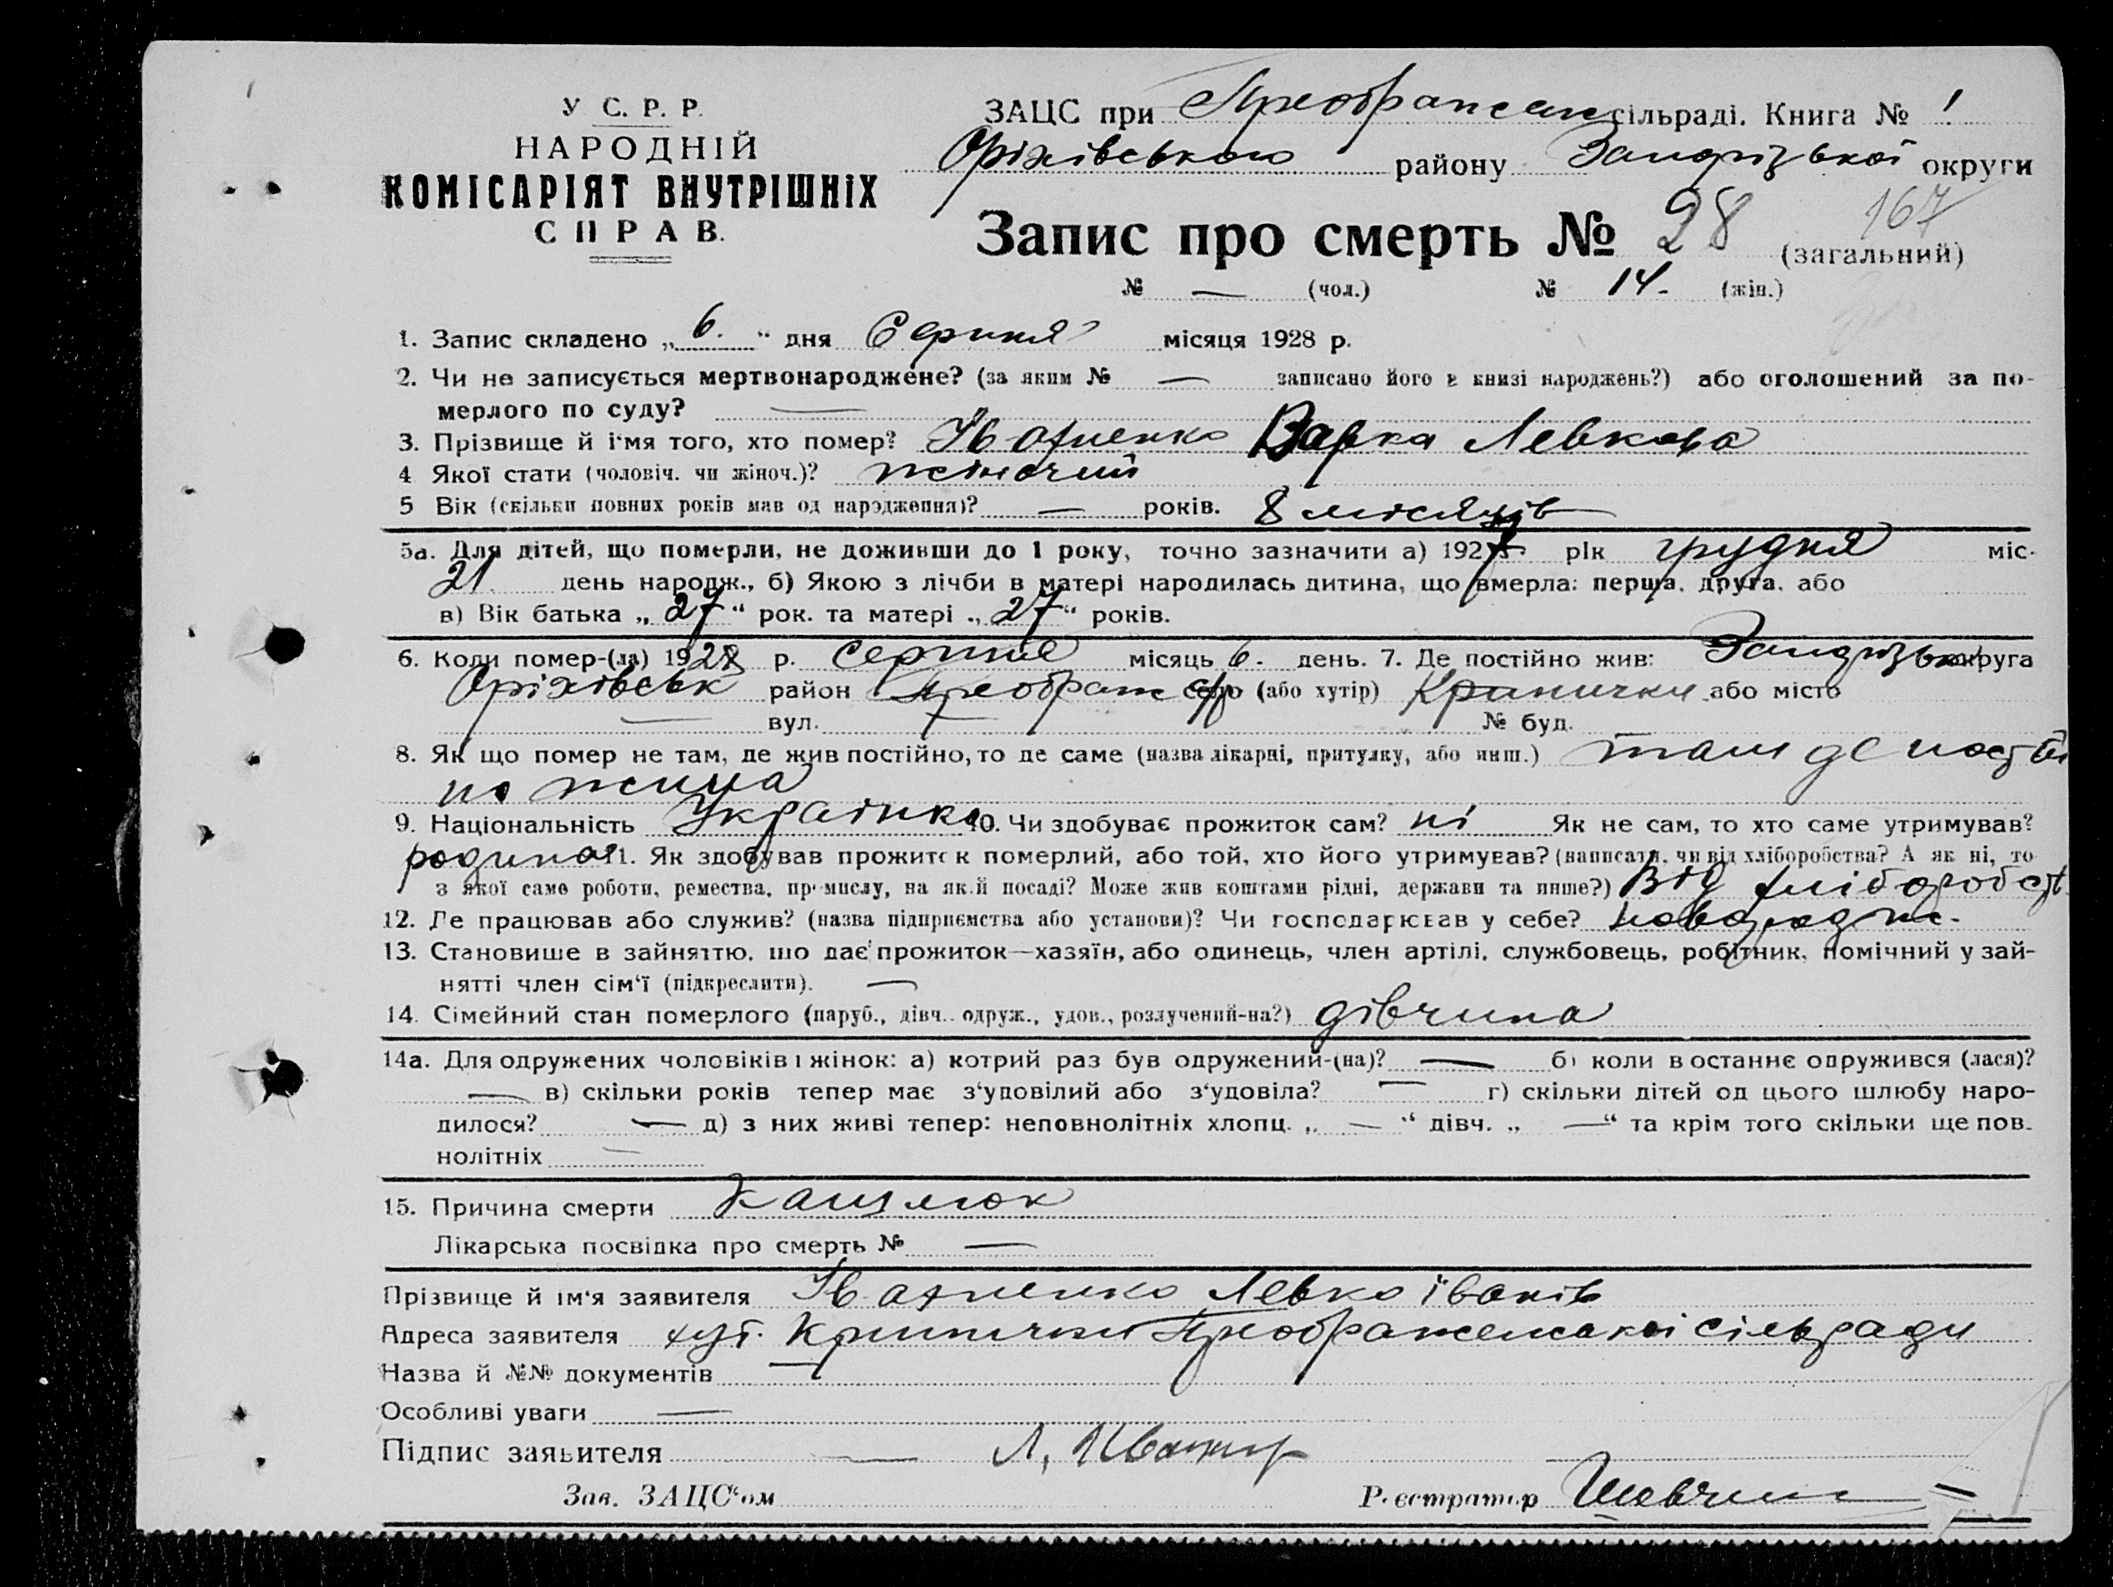 У С. Р. Р.
НАРОДНІЙ
КОМІСАРІЯТ ВНУТРІШНІХ
СПРАВ.
ЗАЦС при Преображен сільраді. Книга № 1
Оріхівського району Запорізької округи
Запис про смерть № 28 (загальний)
167
№ — (чол.) № 14. (жін.)
1. Запис складено „ 6. “ дня Серпня місяця 1928 р.
2. Чи не записується мертвонароджене? (за яким № — записано його в книзі народжень?) або оголошений за по-
мерлого по суду? —
3. Прізвище й і'мя того, хто помер? Івахненко Варка Левкова
4 Якої стати (чоловіч. чи жіноч.)? жіночий
5 Вік (скільки повних років мав од народження)? — років. 8 місяців
5а. Для дітей, що померли, не доживши до 1 року, точно зазначити а) 1927 рік грудня міс.
21. день народж., б) Якою з лічби в матері народилась дитина, що вмерла: перша, друга, або
в) Вік батька „ 27 “ рок. та матері „ 27 “ років.
6. Коли помер-(ла) 1928 р. серпня місяць 6. день. 7. Де постійно жив: Запорізька округа
Оріхівськ район Преображ с/р село (або хутір) Кринички або місто
— вул. — № буд.
8. Як що помер не там, де жив постійно, то де саме (назва лікарні, притулку, або инш.) там де постій
но жила
9. Національність Українка 10. Чи здобуває прожиток сам? ні Як не сам, то хто саме утримував?
родина 11. Як здобував прожиток померлий, або той, хто його утримував? (написати, чи від хліборобства? А як ні, то
з якої саме роботи, ремества, промислу, на якій посаді? Може жив коштами рідні, держави та инше?) Від хліборобств
12. Де працював або служив? (назва підприємства або установи)? Чи господарював у себе?
13. Становище в зайняттю, що дає прожиток—хазяїн, або одинець, член артілі, службовець, робітник, помічний у зай-
нятті член сім'ї (підкреслити). —
14. Сімейний стан померлого (паруб., дівч. одруж., удов., розлучений-на?) дівчина
14а. Для одружених чоловіків і жінок: а) котрий раз був одружений-(на)? — б) коли востаннє одружився (лася)?
— в) скільки років тепер має з'удовілий або з'удовіла? — г) скільки дітей од цього шлюбу наро-
дилося? — д) з них живі тепер: неповнолітніх хлопц. „ — “ дівч. „ — “ та крім того скільки ще пов-
нолітніх —
15. Причина смерти Кашлюк
Лікарська посвідка про смерть № —
Прізвище й ім'я заявителя Івахненко Левко Іванів
Адреса заявителя хут. Кринички Преображенської сільради
Назва й №№ документів —
Особливі уваги —
Підпис заявителя — Л.
Зав. ЗАЦС'ом Реєстратор